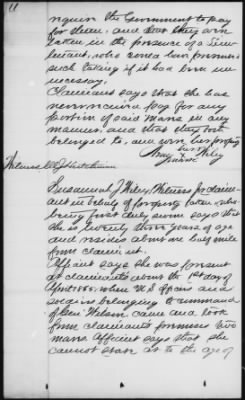 11
require the Government to pay
for them, and that they were
taken in the presence of a Lieu-
tenant, who could have prevented
such taking if it had been un
necessary.
Claimant says that she has
never received pay for any
portion of said mares in any
manner, and that they both
belonged to, and were her property
her
Mary Wiley
mark
Witness
Susannah J Wiley, Witness for claim-
ant in behalf of property taken, who
being first duly sworn says that
she is twenty three years of age
and resides about one half mile
from claimant.
Affiant says she was present
at claimants about the 1st day of
April 1865, when U S Officers and
soldiers belonging to command
of Gen' Wilson came and took
from claimants premises two
mares Affiant says that she
cannot state as to the age of